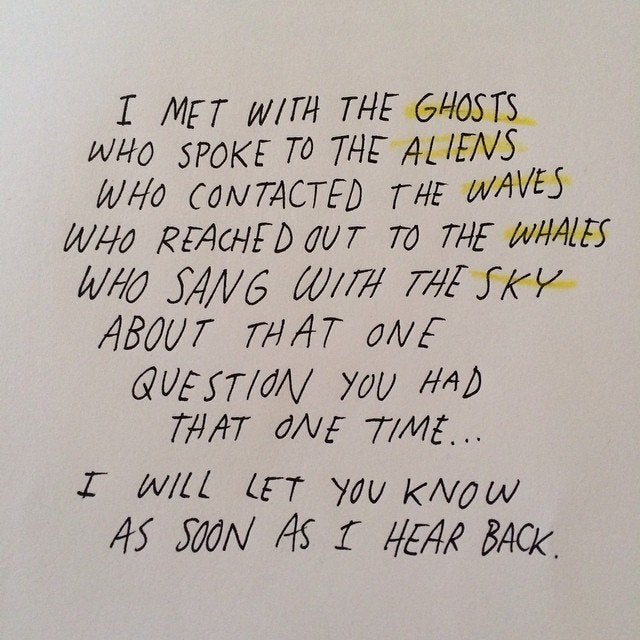 I MET WITH THE GHOSTS
WHO SPOKE TO THE ALIENS
WHO CONTACTED THE WAVES
WHO REACHED OUT TO THE WHALES
WHO SANG WITH THE SKY
ABOUT THAT ONE
QUESTION YOU HAD
THAT ONE TIME...
I WILL LET YOU KNOW
AS SOON AS I HEAR BACK.